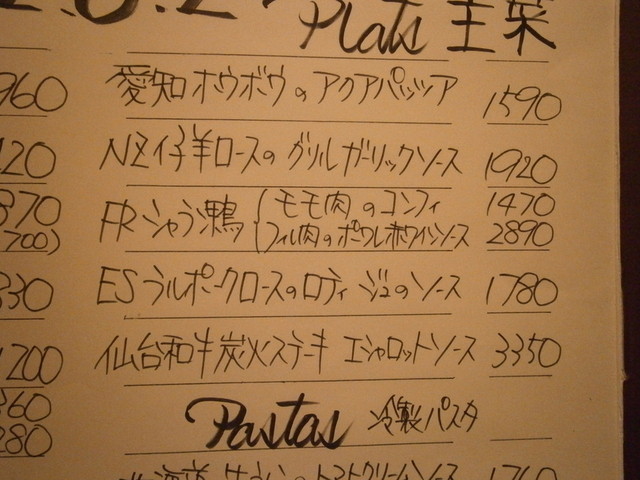 Plats 主菜
960
愛知ホウボウのアクアパッツァ 1590
120
NZ仔羊ロースのグリルガーリックソース 1920
870
FRシャラン鴨 モモ肉のコンフィ 1470
700)
フィレ肉のポワレ赤ワインソース 2890
330
ESラルポークロースのロティ ジュのソース 1780
1200
仙台和牛炭火ステーキ エシャロットソース 3350
360
Pastas 冷製パスタ
280